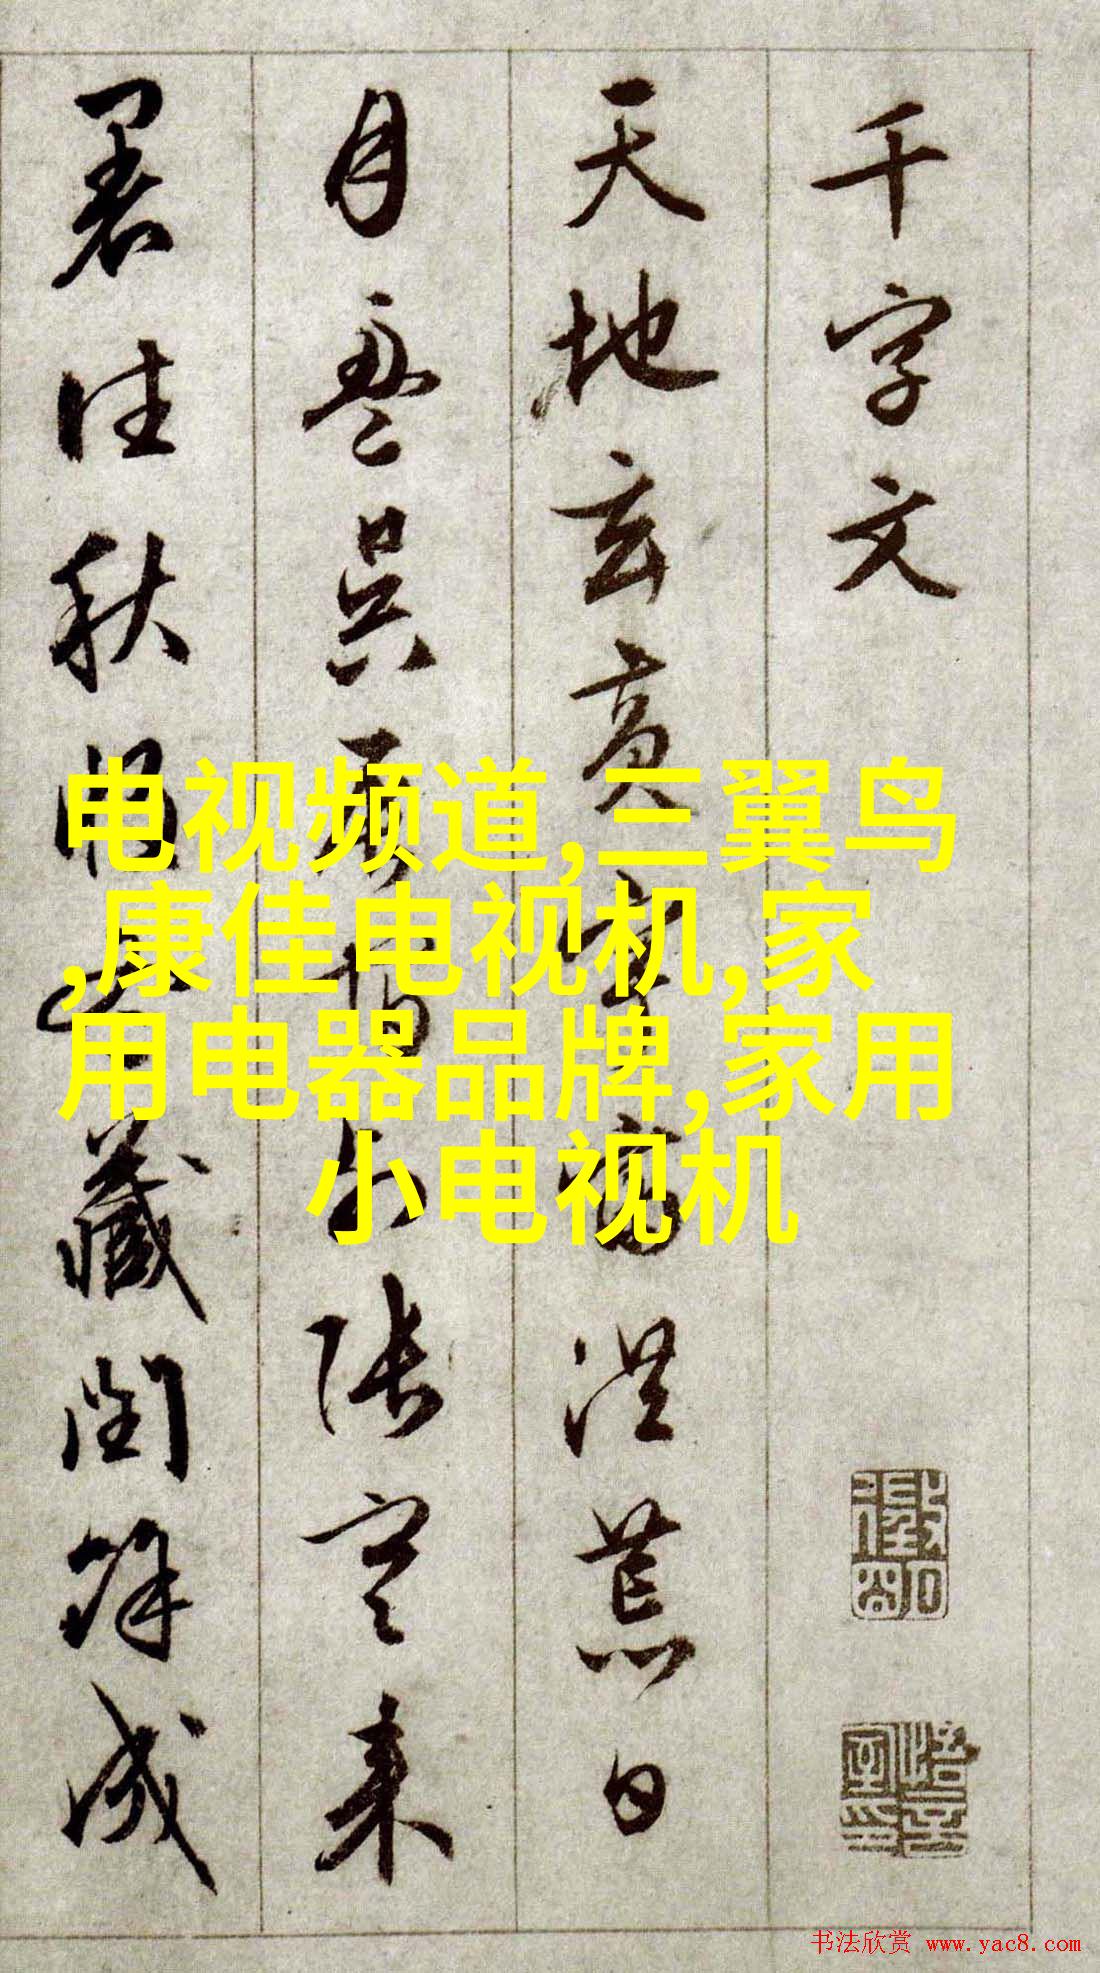 千字文
天地玄黃宇宙洪荒日
月盈昃辰宿列張寒來
暑往秋收冬藏閏餘成
电视频道,三翼鸟
,康佳电视机,家
用电器品牌,家用
小电视机
书法欣赏 www.yac8.com